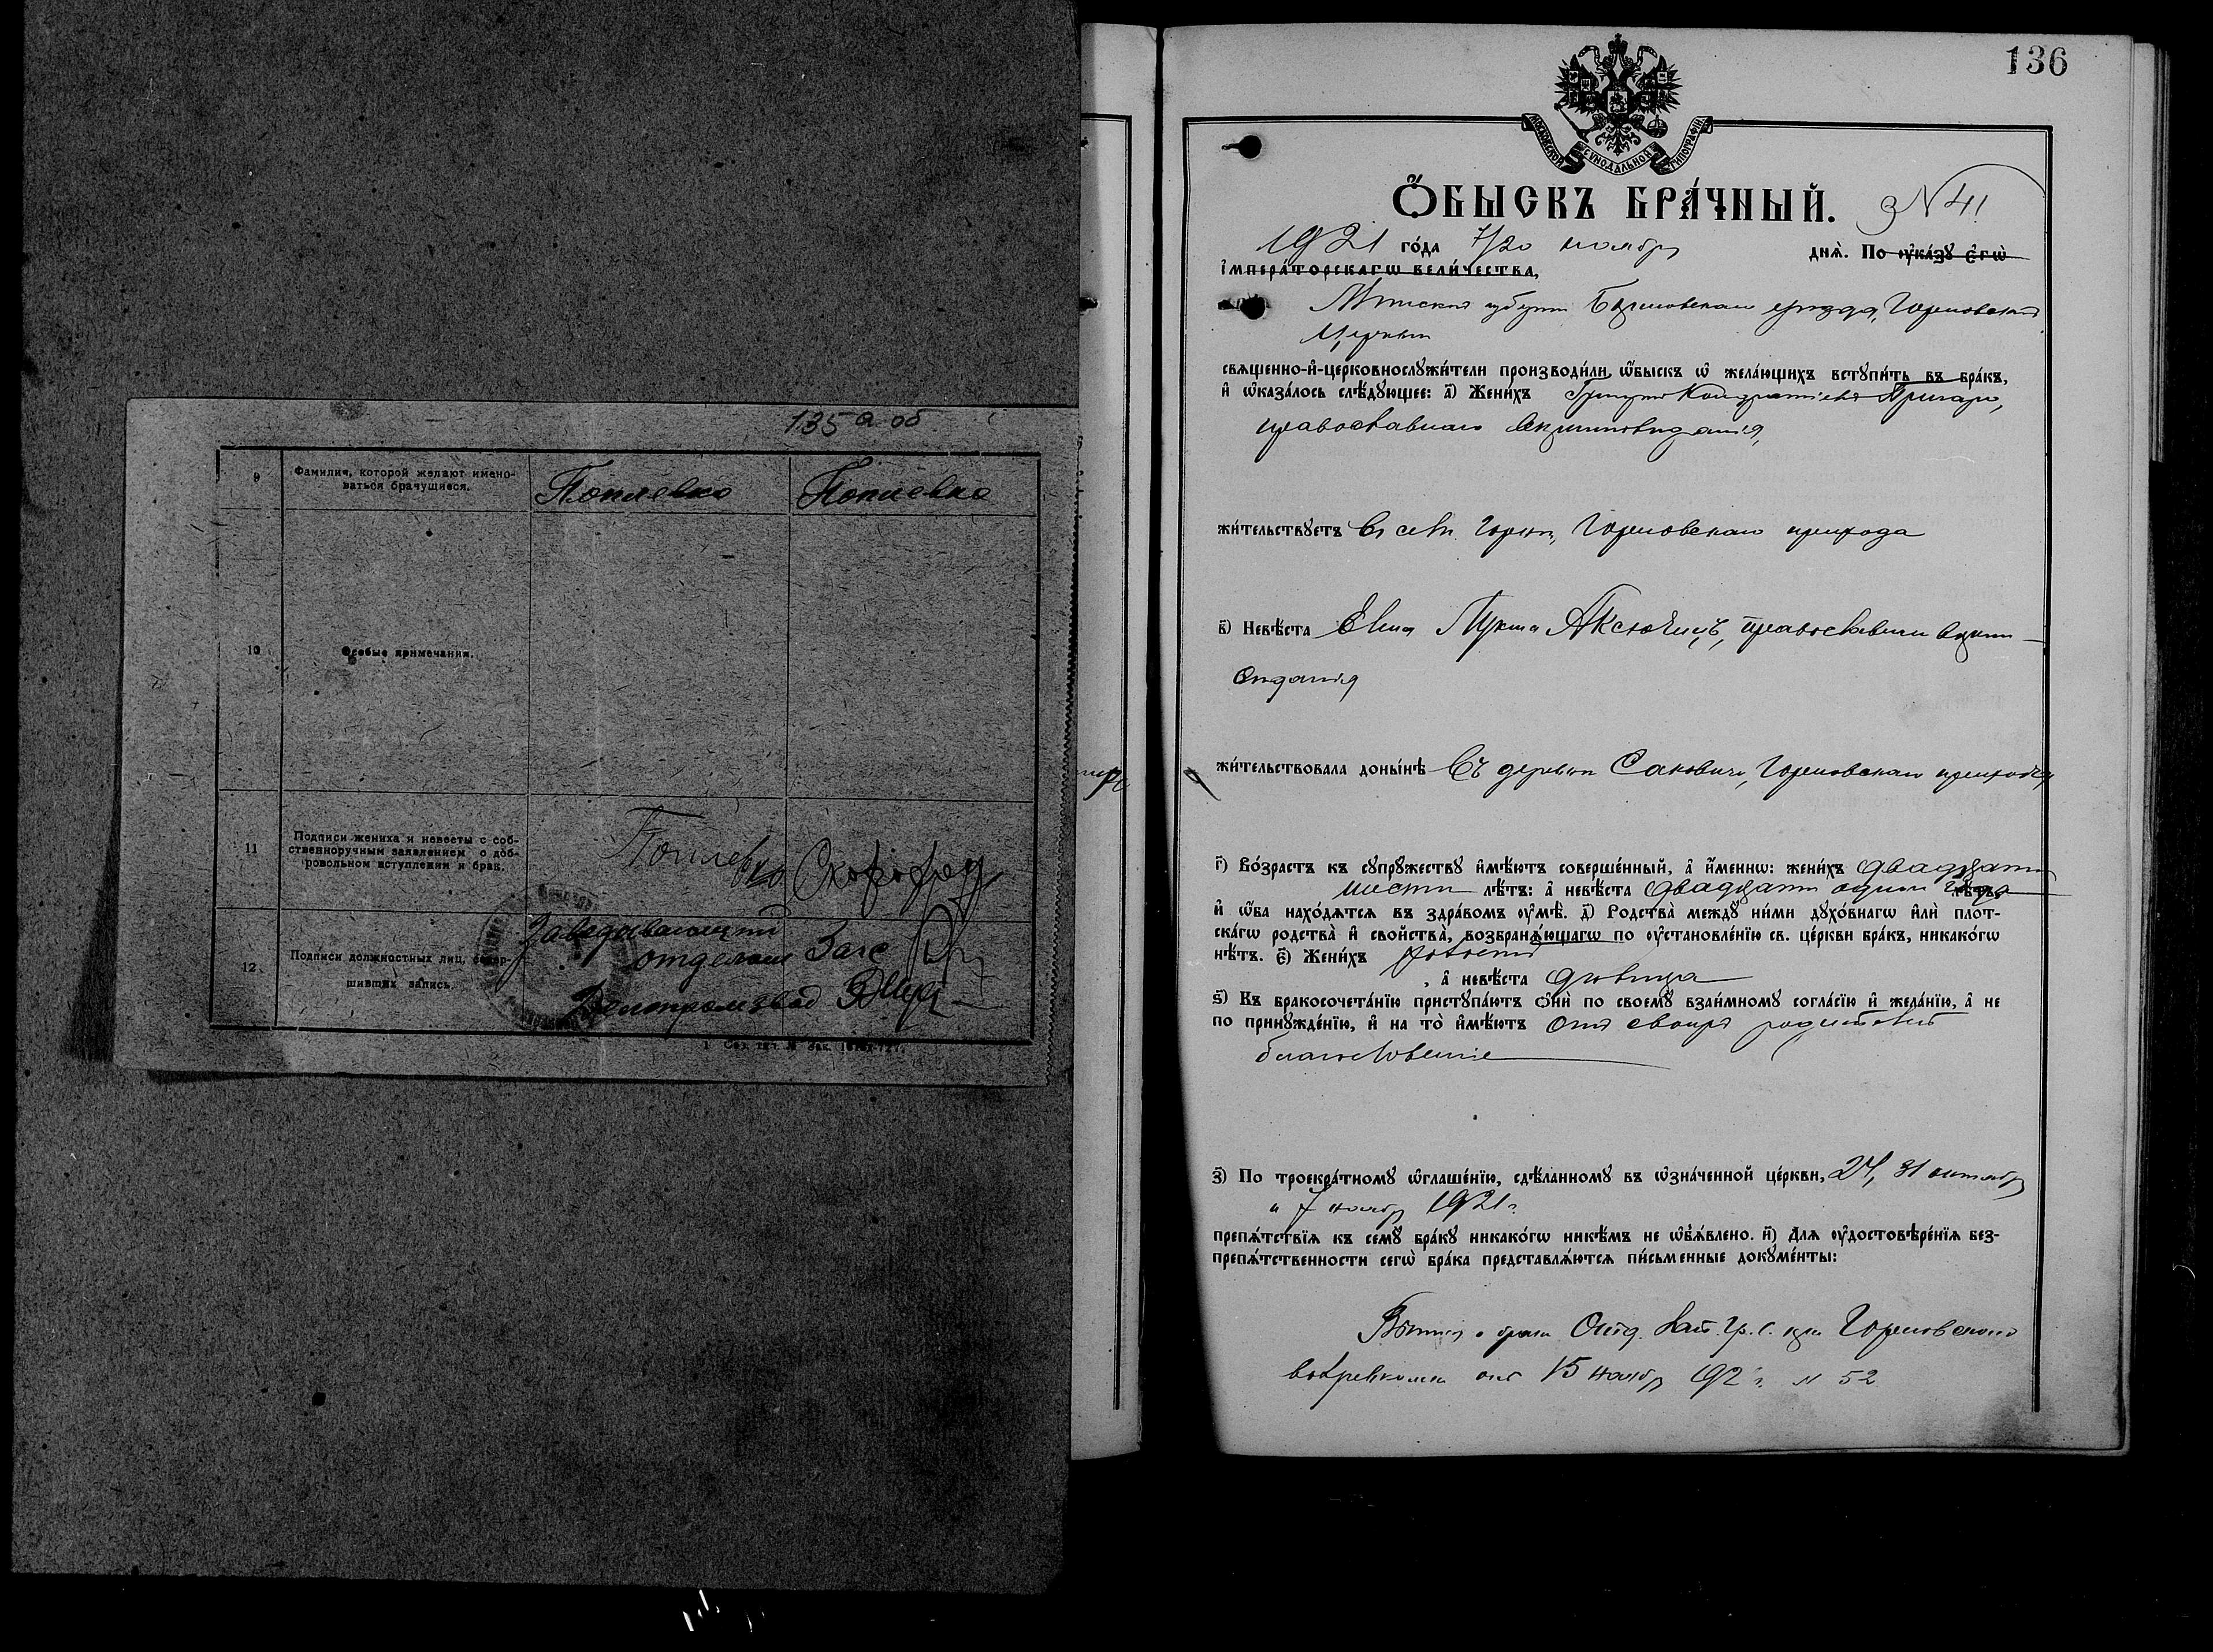 135а об
9 Фамилия, которой желают имено-
ваться брачущиеся. Поплевко Поплевко
10 Особые примечания.
11 Подписи жениха и невесты с соб-
ственноручным заявлением о доб-
ровольном вступлении в брак. Поплевко Скороход
12. Подписи должностных лиц, совер-
шивших запись. Заведывающий
отделом Загс
Делопроизвод
136
МОСКОВСКОЙ СѴНОДАЛЬНОЙ ТИПОГРАФІИ
Ѻ҆БЫСКЪ БРА́ЧНЫЙ. №41
1921 го́да 7/20 ноября днѧ̀. По ᲂу҆ка́зꙋ є҆гѡ̀
і҆мпера́торскагѡ вели́чества,
Минской губерніи уѣзда,
Церкви
свѧщенно-и҆-церковнослꙋжи́тели производи́ли ѡ҆́быскъ ѡ҆ жела́ющихъ встꙋпи́ть въ бра́къ,
и҆ ѡ҆каза́лось слѣ́дꙋющее: а҃) Жени́хъ
православнаго вѣроисповѣданія,
жи́тельствꙋетъ въ селѣ прихода
в҃) Невѣ́ста Елена Аксючицъ, православнаго вѣроис-
повѣданія
жи́тельствовала доны́нѣ въ деревнѣ Саковичи, прихода,
г҃) Во́зрастъ къ сꙋпрꙋ́жествꙋ и҆мѣ́ютъ соверше́нный, а҆ и҆́меннѡ: жени́хъ двадцати
шести лѣ́тъ: а҆ невѣ́ста двадцати одного года лѣ́тъ,
и҆ ѡ҆́ба нахо́дѧтсѧ въ здра́вомъ ᲂу҆мѣ̀. д҃) Родства̀ междꙋ̀ ни́ми дꙋхо́внагѡ и҆лѝ плот-
ска́гѡ родства̀ и҆ сво́йства, возбранѧ́ющагѡ по ᲂу҆становле́нїю св. це́ркви бра́къ, никако́гѡ
нѣ́тъ. є҃) Жени́хъ холостъ
, а҆ невѣ́ста дѣвица
ѕ҃) Къ бракосочета́нїю пристꙋпа́ютъ ѻ҆нѝ по своемꙋ̀ взаи́мномꙋ согла́сїю и҆ жела́нїю, а҆ не
по принꙋжде́нїю, и҆ на то̀ и҆мѣ́ютъ отъ своихъ родителей
благословеніе
з҃) По троекра́тномꙋ ѡ҆глаше́нїю, сдѣ́ланномꙋ въ ѡ҆зна́ченной це́ркви, 24, 31 октября
и 7 ноября 1921 г.
препѧ́тствїѧ къ семꙋ̀ бра́кꙋ никако́гѡ никѣ́мъ не ѡ҆б̾ѧ́влено. и҃) Длѧ ᲂу҆достовѣре́нїѧ без-
препѧ́тственности сегѡ̀ бра́ка представлѧ́ютсѧ пи́сьменные докꙋме́нты:
о бракѣ Отд. Зап. Гр. С. при
волревкома отъ 15 ноября 192 г. № 52